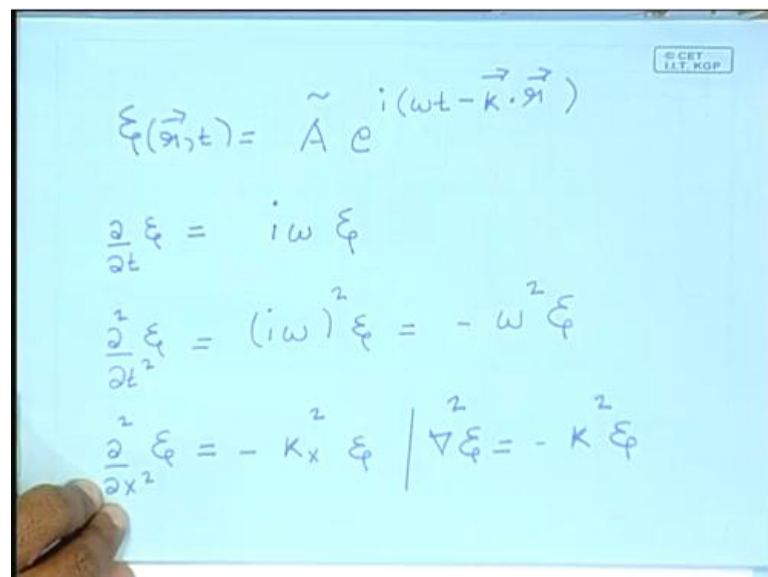 © CET
I.I.T. KGP
ξ(r⃗,t) = Ã e^{i(ωt − k⃗·r⃗)}
∂/∂t ξ = iω ξ
∂²/∂t² ξ = (iω)² ξ = − ω² ξ
∂²/∂x² ξ = − Kₓ² ξ | ∇²ξ = − K² ξ